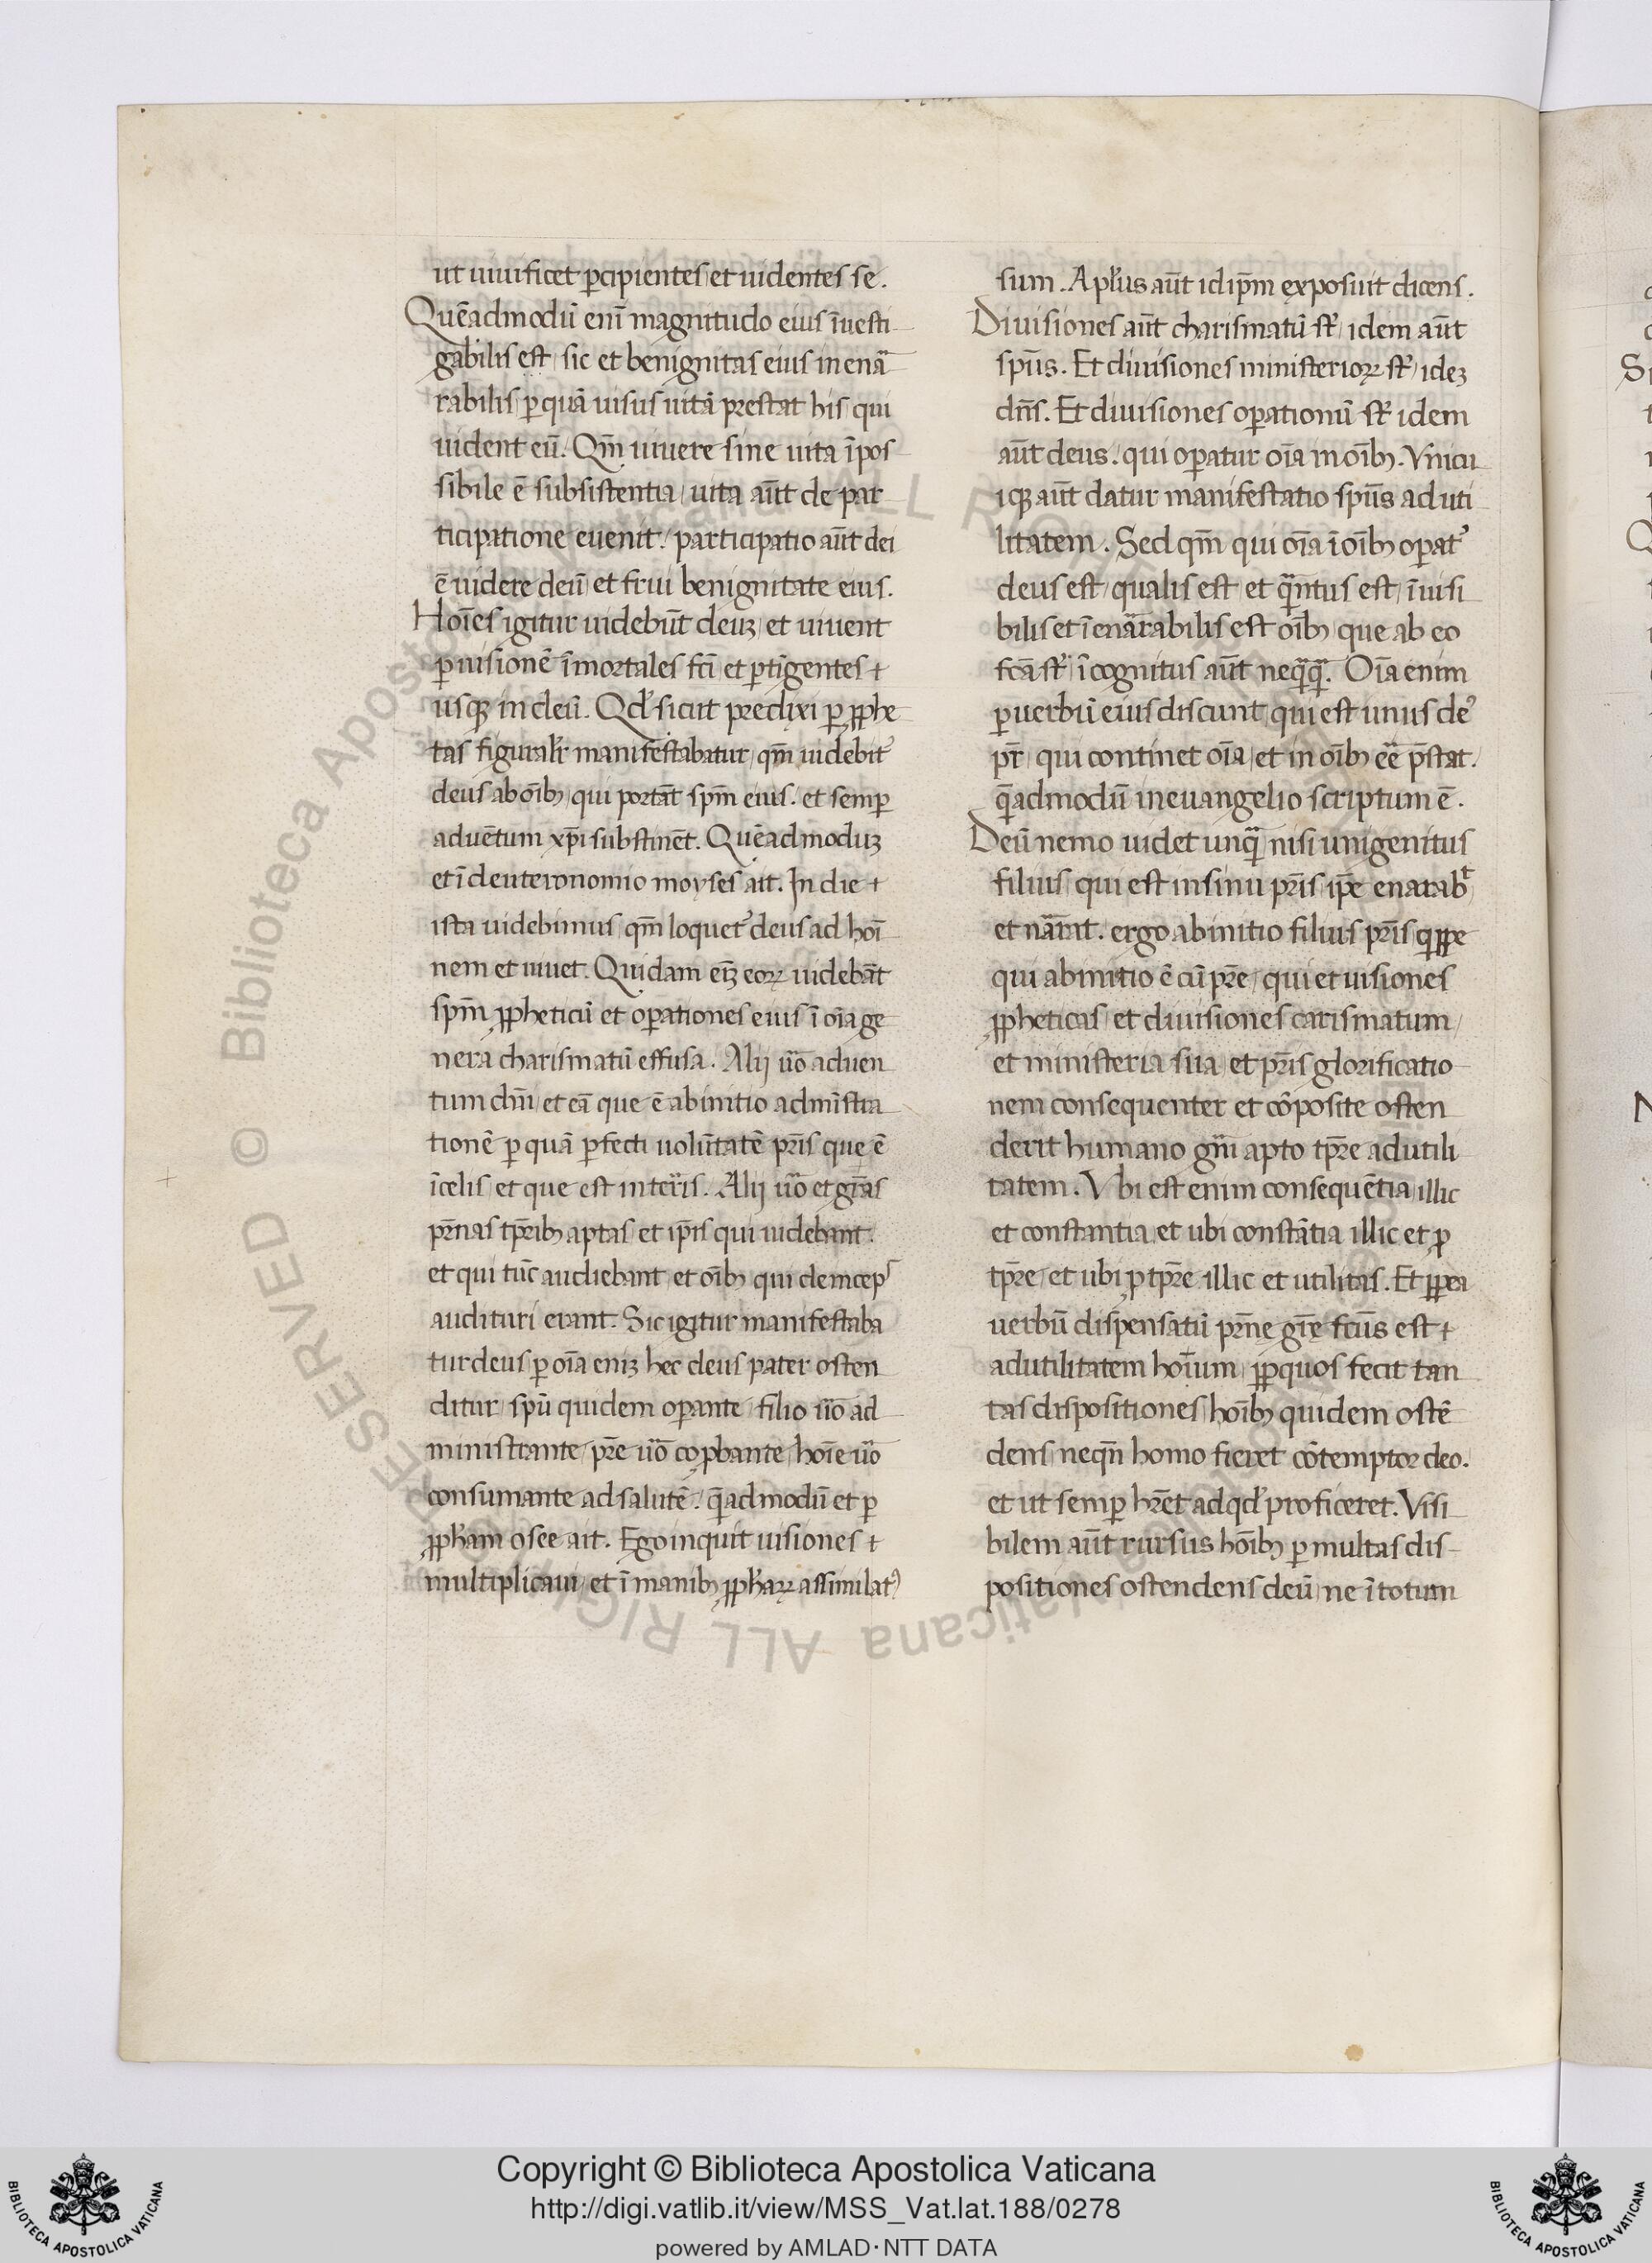 ut uiuificet ꝑcipientes et uidentes se.
Quēadmodū eni᷒ magnitudo eius īuesti
gabilis est, sic et benignitas eius inenaᷓ
rabilis, ꝑ quā uisus uitā prestat his qui
uident eū. Qm̄ uiuere sine uita īpos
sibile ē subsistentia, uita aūt de par
ticipatione euenit, participatio aūt dei
ē uidere deū et frui benignitate eius.
Hoīes igitur uidebūt deuꝫ, et uiuent
ꝑ uisionē īmortales fcī et ꝑtīgentes +
usqꝫ in deū. Qd' sicut predixi ꝑ ꝓphe
tas figuralr̄ manifestabatur, qm̄ uidebit᷒
deus ab oīb; qui portāt spm̄ eius. et semꝑ
aduētum xp̄i substinēt. Quēadmoduꝫ
et ī deuteronomio moyses ait. In die +
ista uidebimus, qm̄ loquet᷒ deus ad hoī
nem et uiuet. Quidam eīꝫ eoꝝ uidebāt
spm̄ ꝓpheticū et oꝑationes eius ī oīa ge
nera charismatū effusa. Alij ūo aduen
tum dnī et eā que ē ab initio admīstra
tionē ꝑ quā ꝑfecti uolūtatē pr̄is que ē
ī celis et que est in terris. Alij ūo et gr̄as
pr̄nas tꝑrib; aptas et ip̄is qui uidebant.
et qui tūc audiebant et oīb; qui deincepˢ
audituri erant. Sic igitur manifestaba
tur deus ꝑ oīa eniꝫ hec deus pater osten
ditur, spū quidem oꝑante, filio ūo ad
ministrante, pr̄e ūo coꝓbante, hoīe ūo
consumante ad salutē. q̄admodū et ꝑ
ꝓpham osee ait. Ego inquit uisiones +
multiplicaui, et ī manib; ꝓphaꝝ assimilat᷒
sum. Apl'us aūt id ip̄m exposuit dicens.
Diuisiones aūt charismatū st᷒, idem aūt
spūs. Et diuisiones ministerioꝝ st᷒, ideꝫ
dn̄s. Et diuisiones oꝑationū st᷒ idem
aūt deus, qui oꝑatur oīa in oīb;. Vnicu
iqꝫ aūt datur manifestatio spūs ad uti
litatem. Sed qm̄ qui oīa ī oīb; oꝑat᷒
deus est, qualis est et qᷓntus est, īuisi
bilis et īenarrabilis est oīb; que ab eo
fcā st᷒, īcognitus aūt neqᷓqᷓ. Oīa enim
ꝑ uerbū eius discunt, qui est unus de᷒
pr̄, qui continet oīa, et in oīb; eē p̄stat.
q̄admodū in euangelio scriptum ē.
Deū nemo uidet unqᷓ, nisi unigenitus
filius, qui est in sinu pr̄is, ip̄e enarab᷒
et narrat. ergo ab initio filius pr̄is qꝓpe
qui ab initio ē cū pr̄e, qui et uisiones
ꝓpheticas, et diuisiones carismatum,
et ministeria sua, et pr̄is glorificatio
nem consequenter et cōposite osten
derit humano gn̄i apto tꝑre ad utili
tatem. Vbi est enim consequētia, illic
et constantia, et ubi constātia illic et ꝓ
tꝑre, et ubi ꝓ tꝑre illic et utilitas. Et ꝓpea
uerbū dispensatū pr̄ne gr̄e fcūs est +
ad utilitatem hoīum, ꝓp quos fecit tan
tas dispositiones, hoīb; quidem ostē
dens neqn̄ homo fieret cōtemptor deo.
et ut semꝑ hr̄et ad qd' proficeret. Visi
bilem aūt rursus hoīb; ꝑ multas dis
positiones ostendens deū, ne ī totum
Copyright © Biblioteca Apostolica Vaticana
http://digi.vatlib.it/view/MSS_Vat.lat.188/0278
powered by AMLAD·NTT DATA
BIBLIOTECA APOSTOLICA VATICANA
BIBLIOTECA APOSTOLICA VATICANA